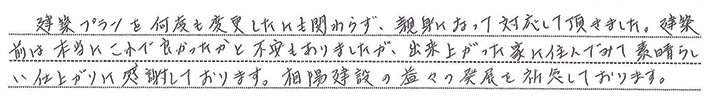 建築プランを何度も変更したにも関わらず、親身になって対応して頂きました。建築
前は本当にこれで良かったかと不安もありましたが、出来上がった家に住んでみて素晴らし
い仕上がりに感謝しております。相陽建設の益々の発展を祈念しております。